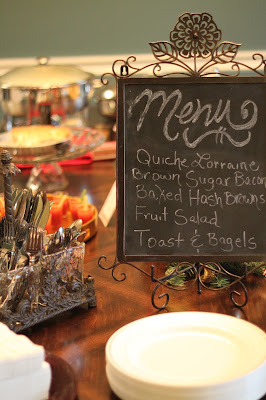 Menu
Quiche Lorraine
Brown Sugar Bacon
Baked Hash Browns
Fruit Salad
Toast & Bagels